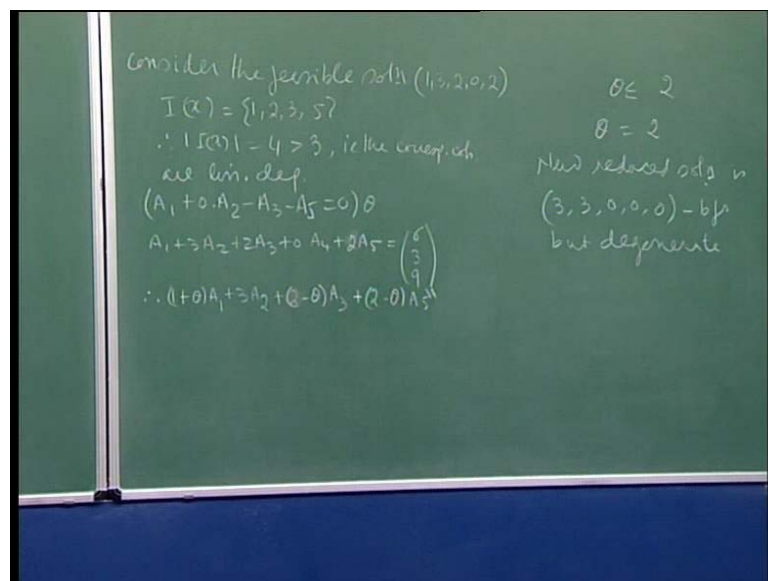 Consider the feasible soln (1,3,2,0,2)
I(x) = {1,2,3,5}
∴ |I(x)| = 4 > 3, i.e the corresp. cols
are lin. dep.
(A₁ + 0.A₂ - A₃ - A₅ = 0) θ
A₁ + 3A₂ + 2A₃ + 0 A₄ + 2A₅ = (6 3 9)
∴ (1+θ)A₁ + 3A₂ + (2-θ)A₃ + (2-θ)A₅ "
θ ≤ 2
θ = 2
New reduced soln is
(3,3,0,0,0) - bfs
but degenerate